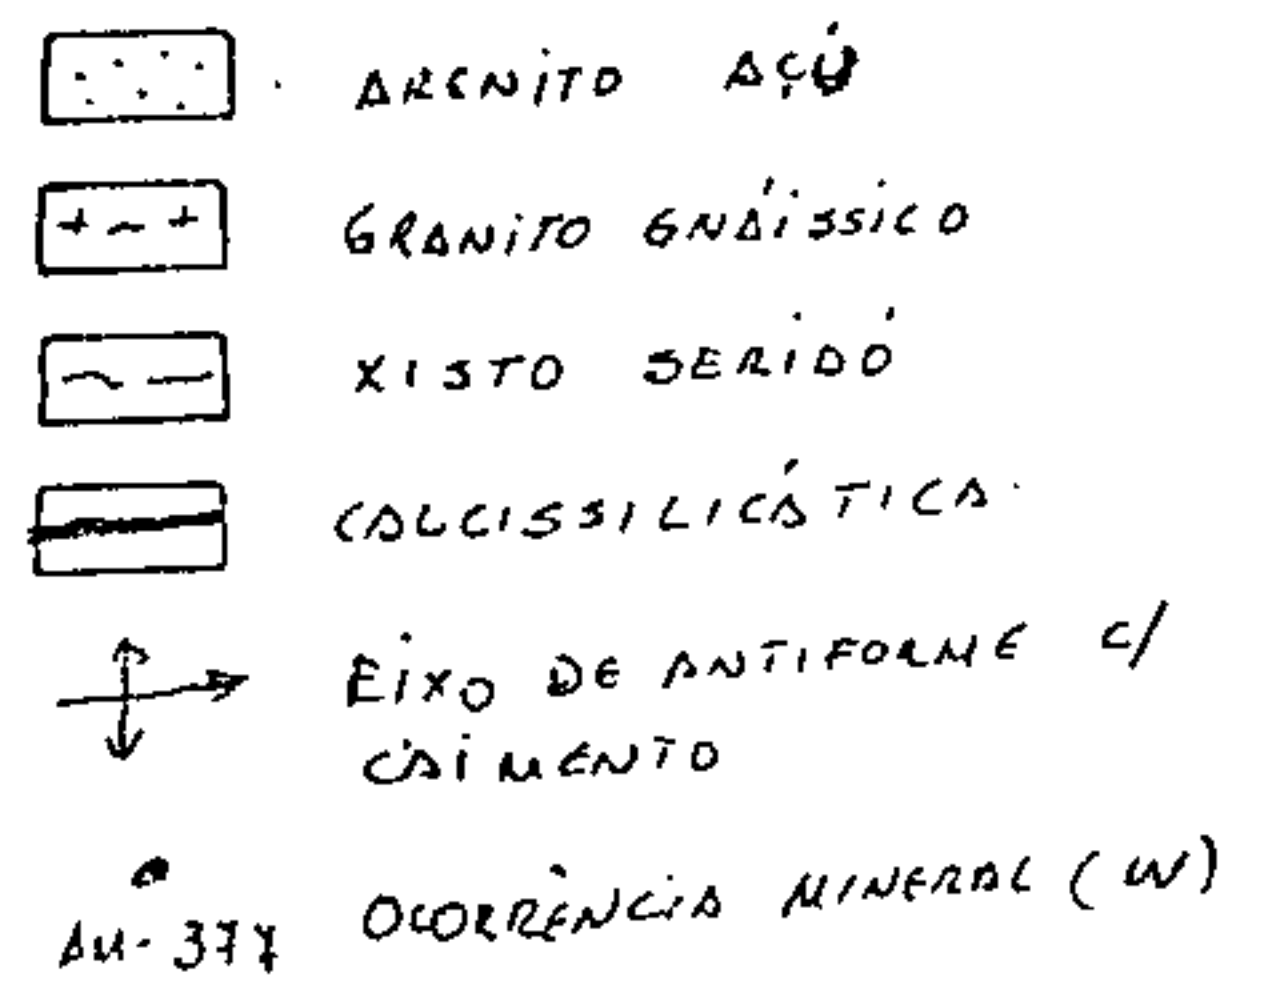 ARENITO AÇÚ
GRANITO GNÁISSICO
XISTO SERIDÓ
CALCISSILICÁTICA
EIXO DE ANTIFORME C/
CAIMENTO
AM-377 OCORRÊNCIA MINERAL (W)